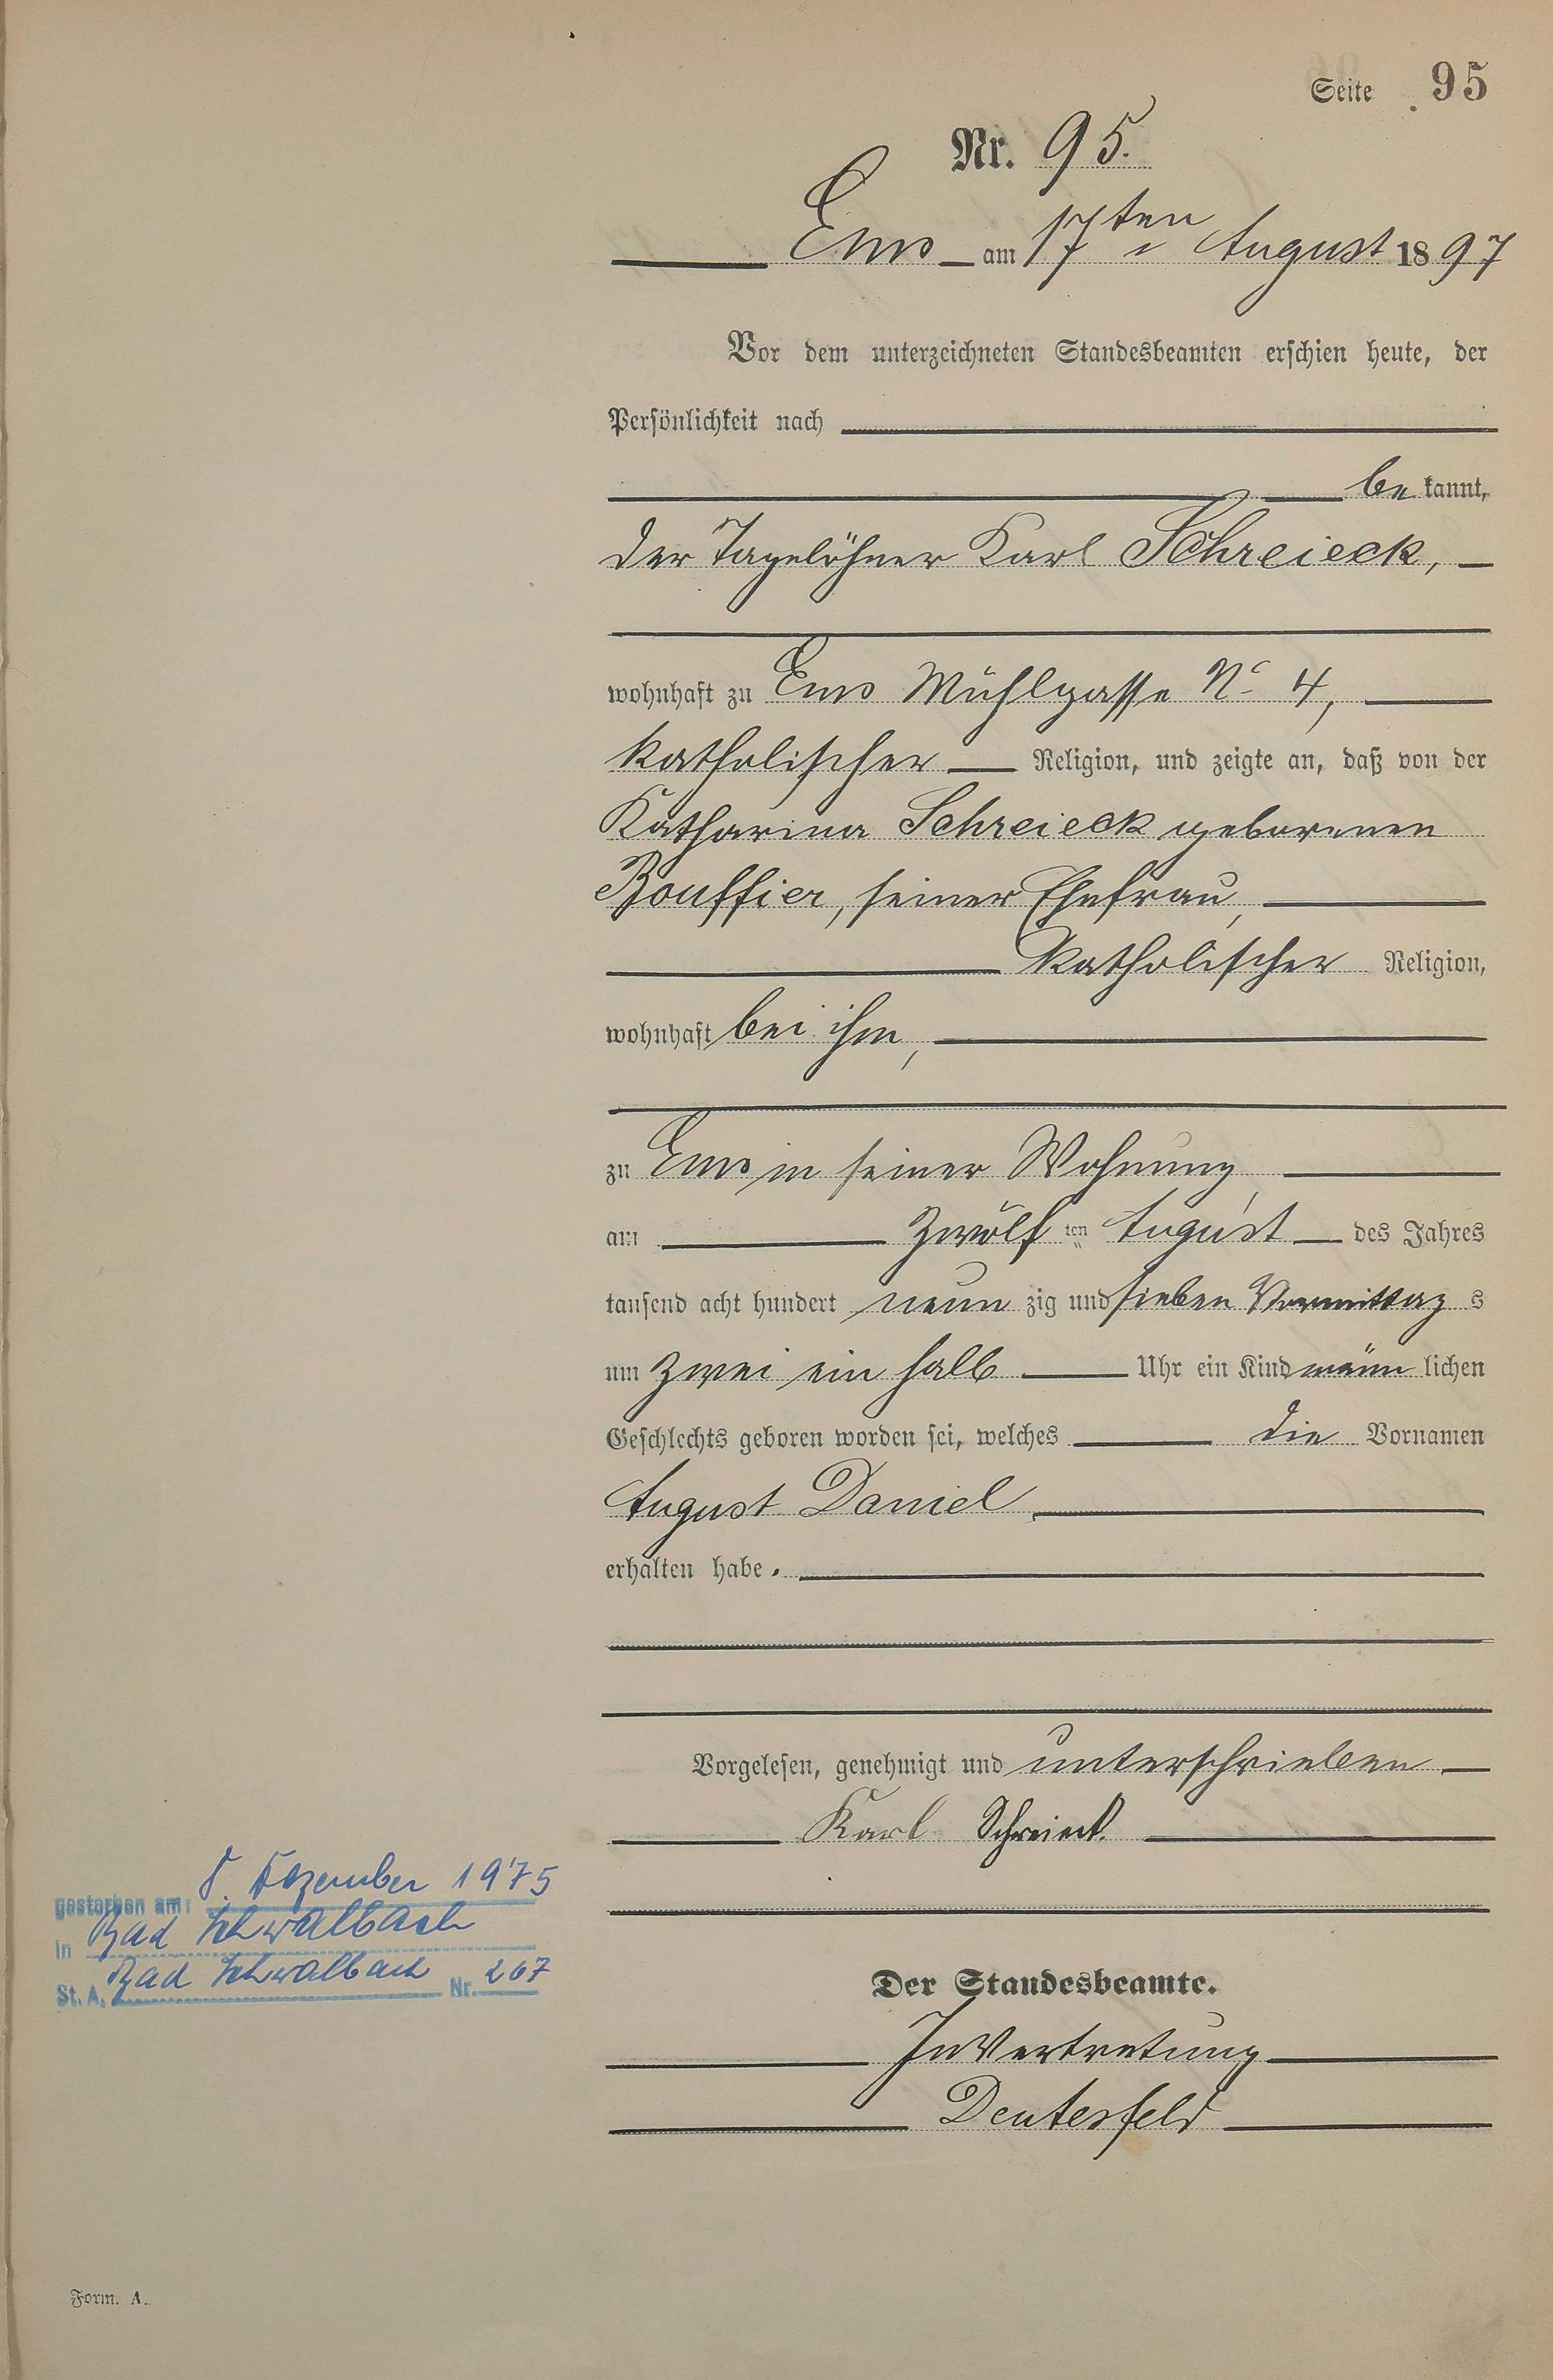 Seite 95
Nr. 95.
Ems am 17ten August 1897
Vor dem unterzeichneten Standesbeamten erschien heute, der
Persönlichkeit nach
bekannt,
der Tagelöhner Karl Schreieck,
wohnhaft zu Ems Mühlgasse No 4,
katholischer Religion, und zeigte an, daß von der
Katharina Schreieck geborenen
Bouffier, seiner Ehefrau,
katholischer Religion,
wohnhaft bei ihm,
zu Ems in seiner Wohnung,
am zwölften August des Jahres
tausend acht hundert neunzig und sieben Vormittags
um zwei ein halb Uhr ein Kind männlichen
Geschlechts geboren worden sei, welches die Vornamen
August Daniel
erhalten habe.
Vorgelesen, genehmigt und unterschrieben
Karl Schreieck.
gestorben am: 8. Dezember 1975
in Bad Schwalbach
St. A. Bad Schwalbach Nr. 267
Der Standesbeamte.
In Vertretung
Deutesfeld
Form. A.